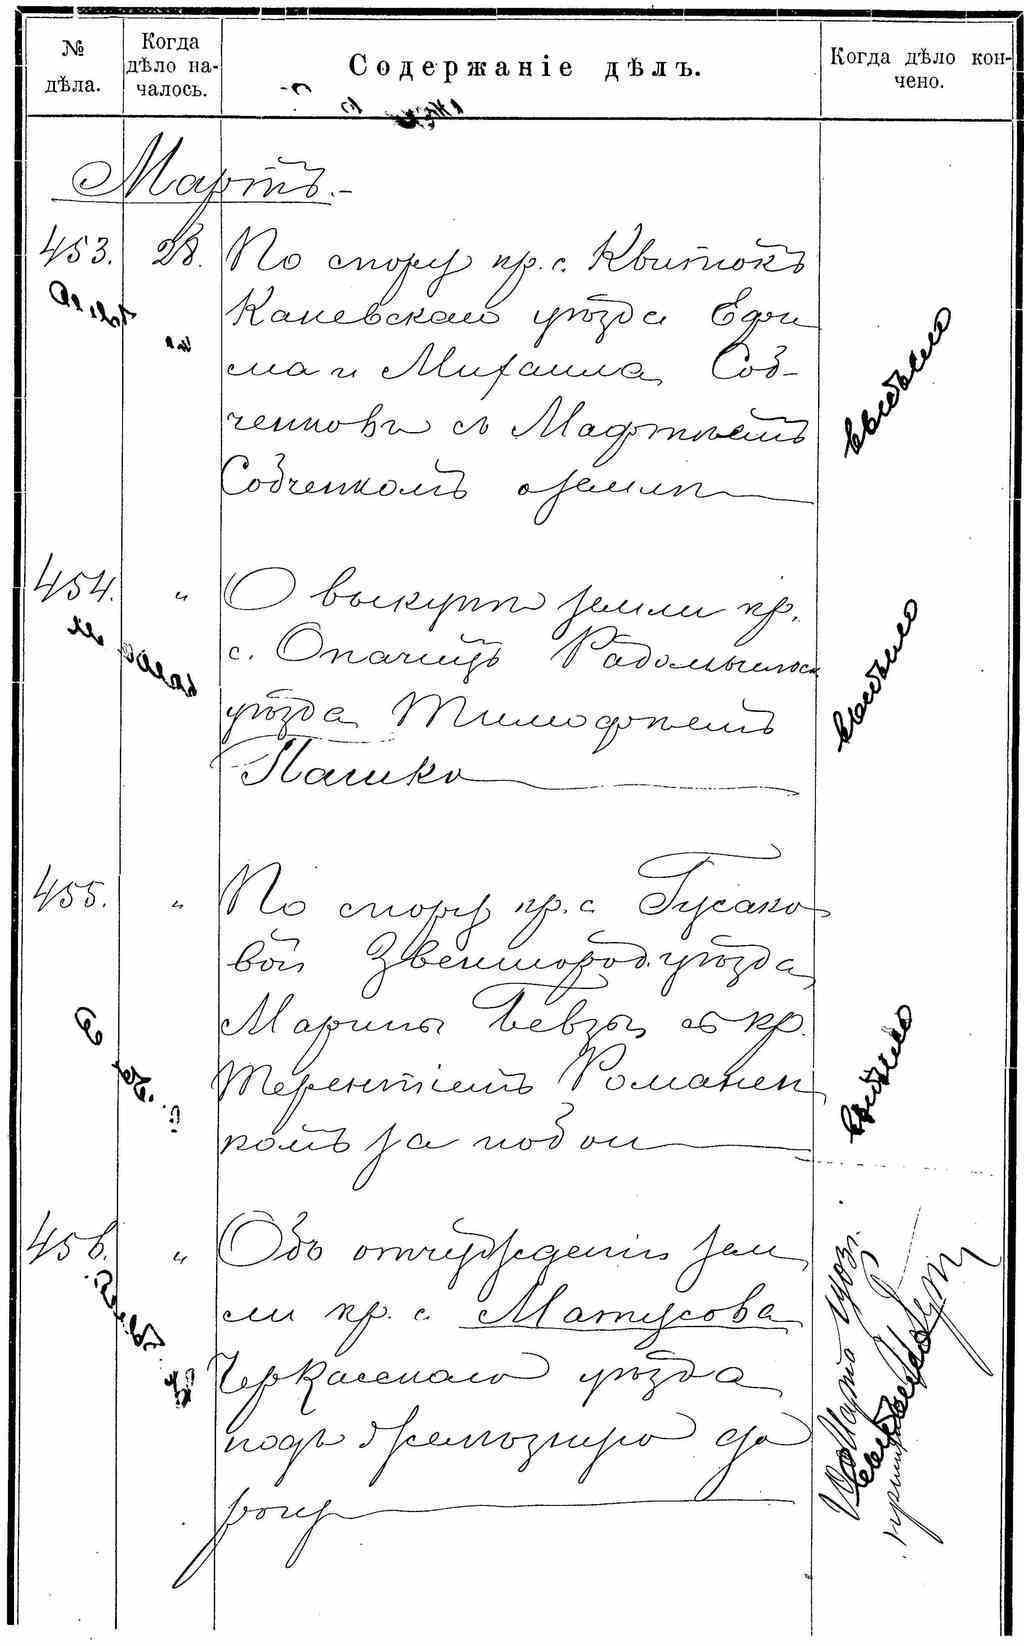 № дѣла.
Когда дѣло на-
чалось.
Содержаніе дѣлъ.
Когда дѣло кон-
чено.
Мартъ.-
453. 28. По спору кр. с. Квитокъ
Каневскаго уѣзда Ефи
ма и Михаила Соб-
ченковъ съ Мафтѣемъ
Собченкомъ о землѣ
выбыло
454. " О выкупѣ земли кр.
с. Опачицъ Радомысльск
уѣзда Тимофѣемъ
Пашко
выбыло
455. " По спору кр. с. Гусако
вой Звенигород. уѣзда
Марины Бевзы съ кр.
Терентіемъ Романен
комъ за побои
выбыло
456. " Объ отчужденіи зем
ли кр. с. Матусова
Черкасскаго уѣзда
подъ желѣзную до
рогу